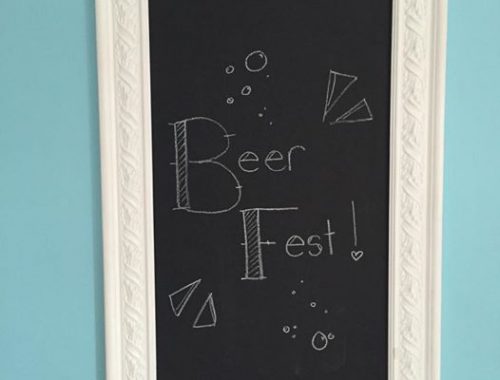 Beer
Fest!